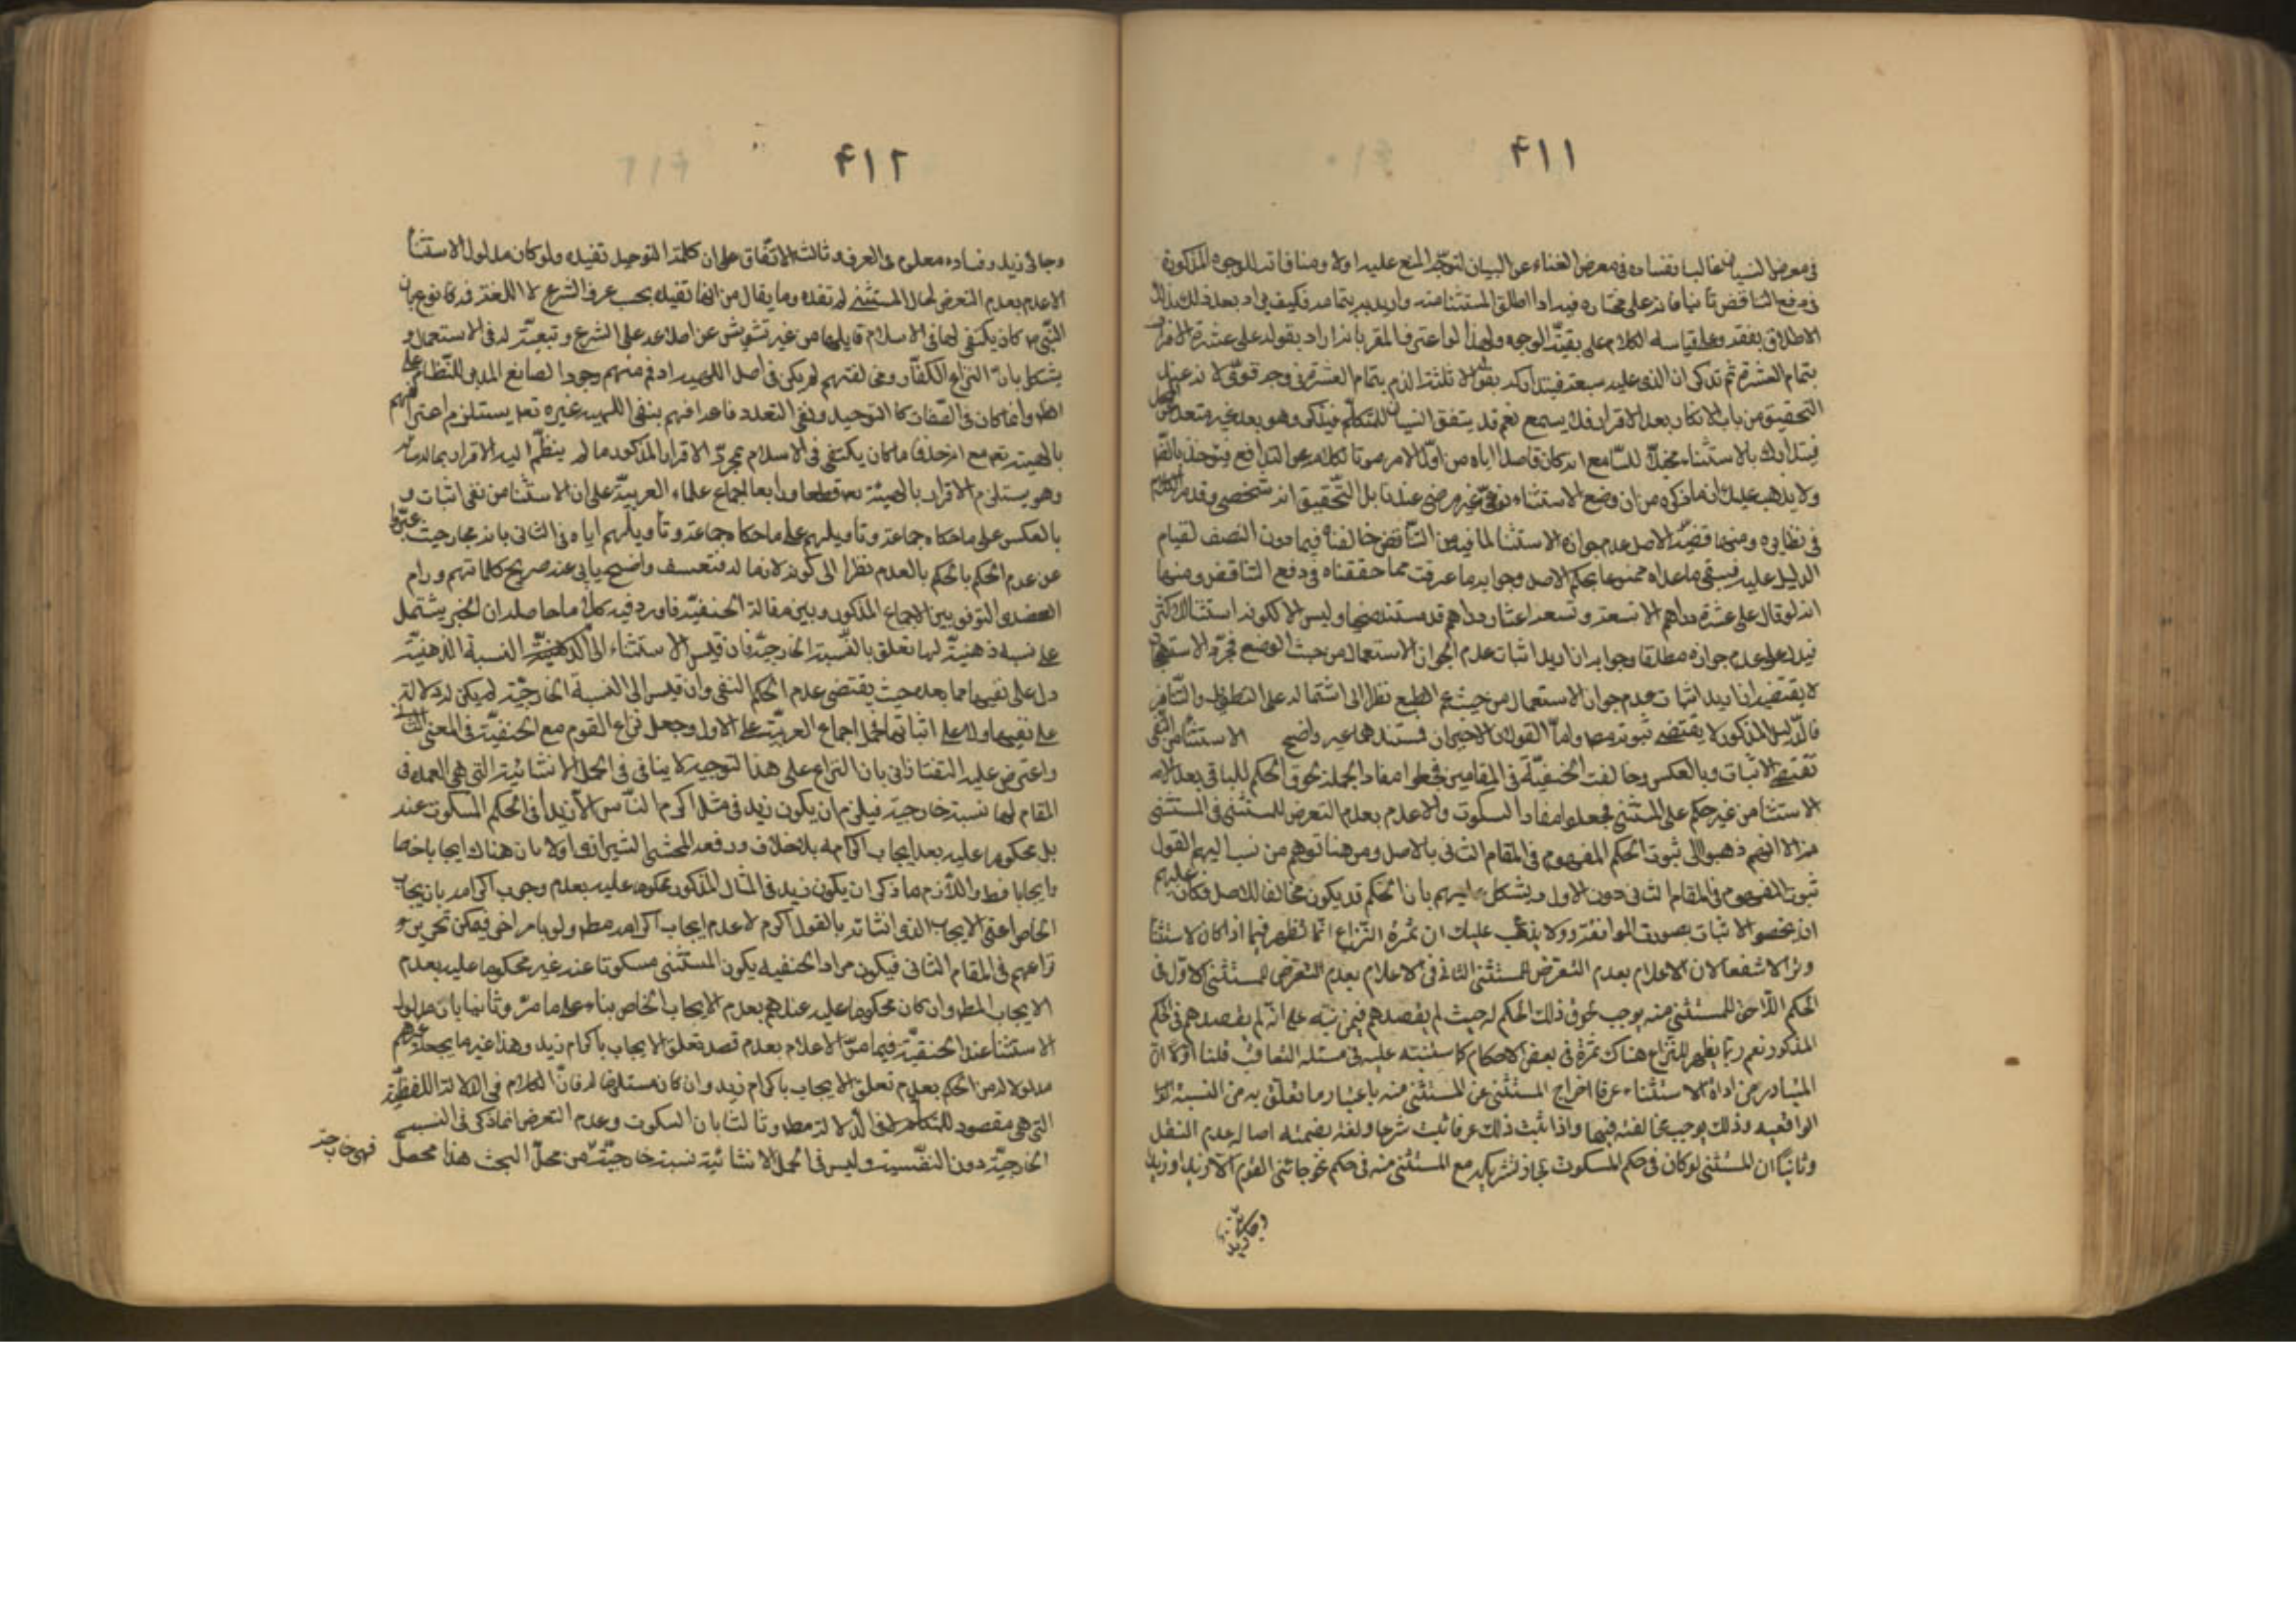 ۴۱۱
في معرض النسيان غالبا بفساده في معرض الغناء عن البيان لتوجّه المنع عليه اولا ومنافاته للوجوه المذكورة
في رفع التناقض ثانيا فانه على مختاره فيه اذا اطلق المستثنا منه واريد به بتمامه فكيف يراد بعد ذلك
الاطلاق بفقد وعلى قياسه الكلام على بقيّة الوجوه ولهذا لو اعترف المقر بانه اراد بقوله على عشرة الاقرار
بتمام العشرة ثم تذكر ان الذي عليه سبعة فيتدارك بقوله الا ثلثة الزم بتمام العشرة في وجه قوىّ لانه عند
التحقيق من باب الانكار بعد الاقرار فلا يسمع نعم قد يتفق النسيان للمتكلم فيذكر وهو بعد غير متعد عن المحل
فيتدارك بالاستثناء مخيّلا للسّامع انه كان قاصدا اياه من اوّل الامر صونا لكلامه عن التدافع فيؤخذ بالظ
ولا يذهب عليك ان ما ذكره من ان وضع الاستثناء نوعىّ غير مرضى عندنا بل التّحقيق انه شخصى وقد مر الكلام
في نظايره ومنها قضيّة الاصل عدم جواز الاستثنا لما فيه من التّناقض خالفناه فيما دون النصف لقيام
الدليل عليه فيبقى ما عداه ممنوعا بحكم الاصل وجوابه ما عرفت مما حققناه في دفع التناقض ومنها
انه لو قال على عشرة دراهم الا تسعة وتسعة اعشار درهم عد مستهجنا وليس الا لكونه استثناء الاكثر
فيدل على عدم جوازه مطلقا وجوابه ان اريد اثبات عدم الجواز الاستعمال من حيث الوضع فمجرّد الاستهجان
لا يقتضيه ان اريد اثبات عدم جواز الاستعمال من حيث عدم الطبع نظرا الى اشتماله على التطويل والتنافر
فالدّليل المذكور لا يقتضى ثبوته مط واما القولان الاخيران فمستندهما غير واضح الاستثنا من النفى
تقتضى الاثبات وبالعكس وخالفت الحنفيّة في المقامين فجعلوا مفاد الجملة لحوق الحكم للباقى بعد الا
الاستثنا من غير حكم على المستثنى فجعلوا مفادا السكوت والاعلام بعدم التعرض للمستثنى في المستثنى
منه الا انهم ذهبوا الى ثبوت الحكم المفهوم في المقام الثانى بالاصل ومن هنا توهم من نسب اليهم القول
ثبوت المفهوم في المقام الثانى دون الاول ويشكل عليهم بان الحكم قد يكون مخالفا للاصل فكان عليهم
ان يخصوا الاثبات بصورة الموافقة ولا يذهب عليك ان ثمرة النّزاع انّما تظهر فيما اذا كان الاستثنا
وترا لا شفعا لان الاعلام بعدم التعرض للمستثنى الثانى في الاعلام بعدم التعرض للمستثنى الاول في
الحكم اللّاحق للمستثنى منه يوجب لحوق ذلك الحكم له حيث لم يقصدهم فيمن نبّه على انّه لم يقصدهم في الحكم
المذكور نعم ربّما يظهر للنّزاع هناك ثمرة في بعض الاحكام كما سننبّه عليه في مسئله التعاقب فلنا اوّلا انّ
المتبادر من اداة الاستثناء عرفا اخراج المستثنى عن المستثنى منه باعتبار ما تعلّق به من النسبة
الواقعيه وذلك يوجب مخالفته فيها واذا ثبت ذلك عرفا ثبت شرعا ولغة بضميمة اصاله عدم النقل
وثانيًا ان المستثنى لو كان في حكم المسكوت لجاز تشريكه مع المستثنى منه في حكم نحو جائنى القوم الّا زيدا وزيد
وجائنى زيد
۴۱۲
وجائنى زيد وفساده معلوم في العرف وثالثا الاتّفاق على ان كلمة التوحيد تفيده ولو كان مدلول الاستثنا
الاعلام بعدم التعرض لحال المستثنى لم تفده وما يقال من انها تفيده بحسب عرف الشرع لا اللغة فمدفوع بان
النّبى ص كان يكتفى لها في الاسلام قايلها من غير تفتيش عن اطلاعه على الشرع وتبعيّته له في الاستعمال و
يشكل بانّ النزاع الكفّار ومخالفتهم لم يكن في اصل الالهيه اذ في منهم وجود الصانع المدبر للنّظام على
الظ وانما كان في الصّفات كالتوحيد ونفى التعدد فاعترافهم بنفى الالهيه عن غيره تعم يستلزم اعترافهم
بالهيته تعم مع انه خلاف ما كان يكتفى في الاسلام بمجرّد الاقرار المذكور ما لم ينظّم اليه الاقرار بما له
وهو يستلزم الاقرار بالهيئته تعم قطعا ورابعا اجماع علماء العربيّة على ان الاستثنا من نفى اثبات و
بالعكس على ما حكاه جماعة وتاويلهم على ما حكاه جماعة وتاويلهم اياه في الثانى بانه مجاز حيث عبّروا
عن عدم الحكم بالحكم بالعدم نظرا الى كونه لازما له فتعسف واضح يابى عنه صريح كلماتهم ورام
العضدى التوفيق بين الاجماع المذكور وبين مقالة الحنفيّه فاورد فيه كلاما حاصله ان الخبر يشتمل
على نسبة ذهنيّة لها تعلق بالنّسبة الخارجيّة فان قيس الاستثناء الى الذهنيّة النسبة الذهنيّة
دل على نفيها مما بعده حيث يقتضى عدم الحكم النفسى وان قيس الى النسبة الخارجيّة لم يكن له دلالة
على نفيها ولا على اثباتها فحمل اجماع العربيّة على الاول وجعل نزاع القوم مع الحنفيّة في المعنى الثانى
واعترض عليه التفتازانى بان النزاع على هذا التوجيه لا يتاتى في الجمل الانشائيّة التى هى العمدة في
المقام لها نسبة خارجية فيلزم ان يكون زيد في مثل اكرم النّاس الا زيدا في الحكم المسكوت عنه
بل محكوما عليه بعد ايجاب اكرامه بلا خلاف ودفعه المحشى الشيرازى اولا بان هناك ايجابا خاصا
وايجابا مط واللّازم ما ذكر ان يكون زيد في المثال المذكور محكوما عليه بعدم وجوب اكرامه بايجاب
الخاص اعنى الايجاب الذى انشائه بالقول اكرم لا عدم ايجاب اكرامه مط ولو بامر اخر فيمكن تحرير
نزاعهم في المقام الثانى فيكون مراد الحنفيه يكون المستثنى مسكوتا عنه غير محكوم عليه بعدم
الايجاب المط وان كان محكوما عليه عندهم بعدم الايجاب الخاص بناء على ما مرّ وثانيا بان مدلول
الاستثنا عند الحنفيّة فيما مرّ الاعلام بعدم قصد تعلق الايجاب باكرام زيد وهذا غير ما يجعله غيرهم
مدلولا له من الحكم بعدم تعلق الايجاب باكرام زيد وان كان مستلزما له فانّ الكلام في الدلالة اللفظيّة
التى هى مقصود للمتكلم لا في الدلالة مط وثالثا بان السكوت وعدم التعرض انما ذكر في النسبة
الخارجيّة دون النفسية وليس في الجمل الانشائية نسبة خارجيّة فهى خارجة من محلّ البحث هذا محصل